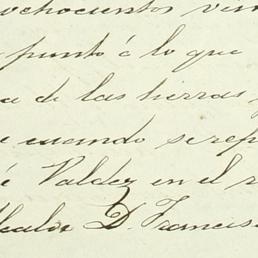 ochocientos vein
punto á lo que
a de las tierras
e cuando se rep
é Valdez en el r
Alcalde D. Francisc